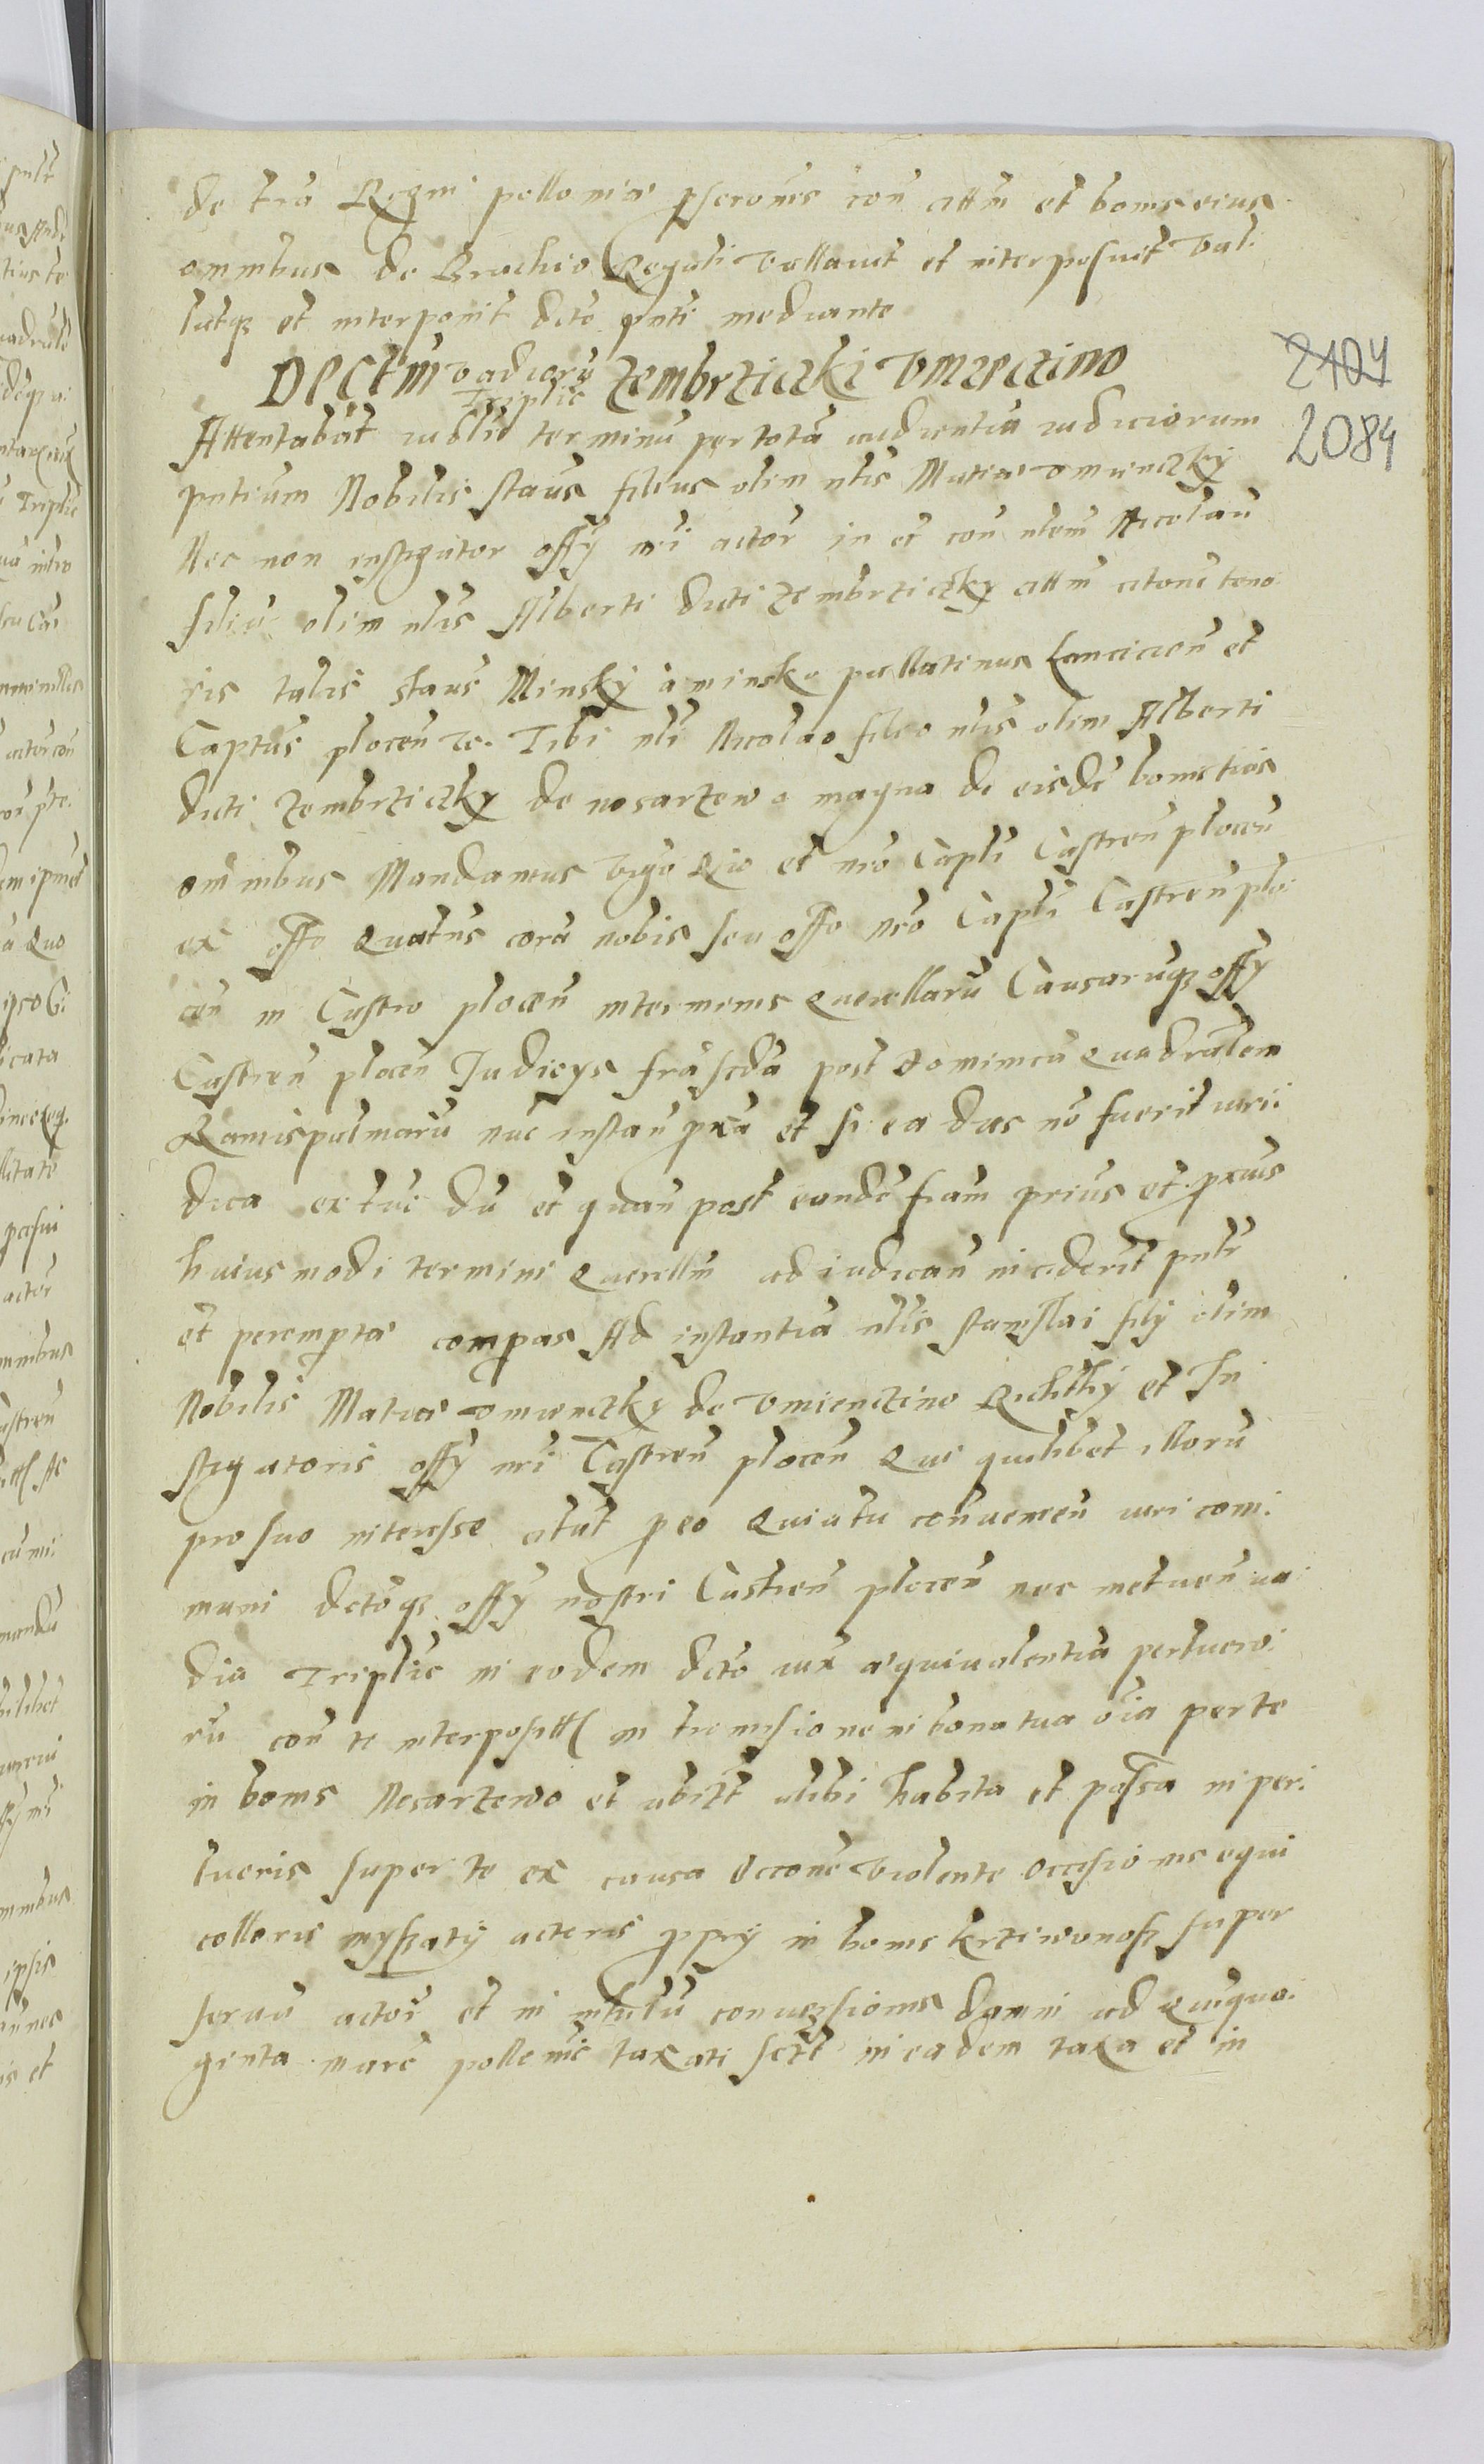 de tra Regni pollonia pscronis con attm et bonis eius
omnibus de Brachio Regali vallauit et interposuit val
latqz et interponit dcto pnti mediante
Dectm vadiorũ Triplic zembrziczki vmieczino
2104
2084
Attentabat iudlit terminũ per totã audientiã iudiciorum
pntium Nobilis staus filius olim nlis Matiae vmienczky
Nec non instigator offy nri actor in et con nlem Nicolaũ
filiũ olim nlis Alberti dicti zembrziczky attm citone teno
ris talis staus Minsky a minsko pallatinus Lancicien et
Captus plocen zc. Tibi nli Nicolao filio nlis olim Alberti
dicti zembrziczky de nosarzewo magna de eisde bonis tuis
omnibus Mandamus vigo Rio et nro Capli Castren plocen
ex offo Quatns corã nobis seu offo nro Capli Castren plo
cen in Castro plocen in terminis Querellarũ Causarũqz offy
Castren plocen Judicys fra scda post dominicã Quadralem
Ramispalmarũ nũc instan pxa et si ea das no fuerit iuri
dica ex tũc dũ et quan post eande fram prius et pxius
huiusmodi termini Querellm ad iudican inciderit pntr
et perempta compas Ad instantiã nlis stanislai fily olim
Nobilis Matiae vmienczky de vmienczino Richthy et In
stigatoris offy nri Castren plocen Qui quilibet illorũ
pro suo interesse citat peo Quia tu conuenien iuri comi
muni dctoqz offy nostri Castren plocen nec metuen va
dia Triplic in eodem dcto iux aequiualentiã perlucro
rũ con te interposit in tromisione in bona tua oia per te
in bonis Nosarzewo et vbizt alibi habita et possa in per
lueris super te ex causa occone violente occisionis equi
colloris myszaty actoris ppry in bonis krziwonosz super
seruũ actor et in intulũ conuersionis damni ad Quiqua
ginta marc pollonic taxati sczt in eadem taxa et in